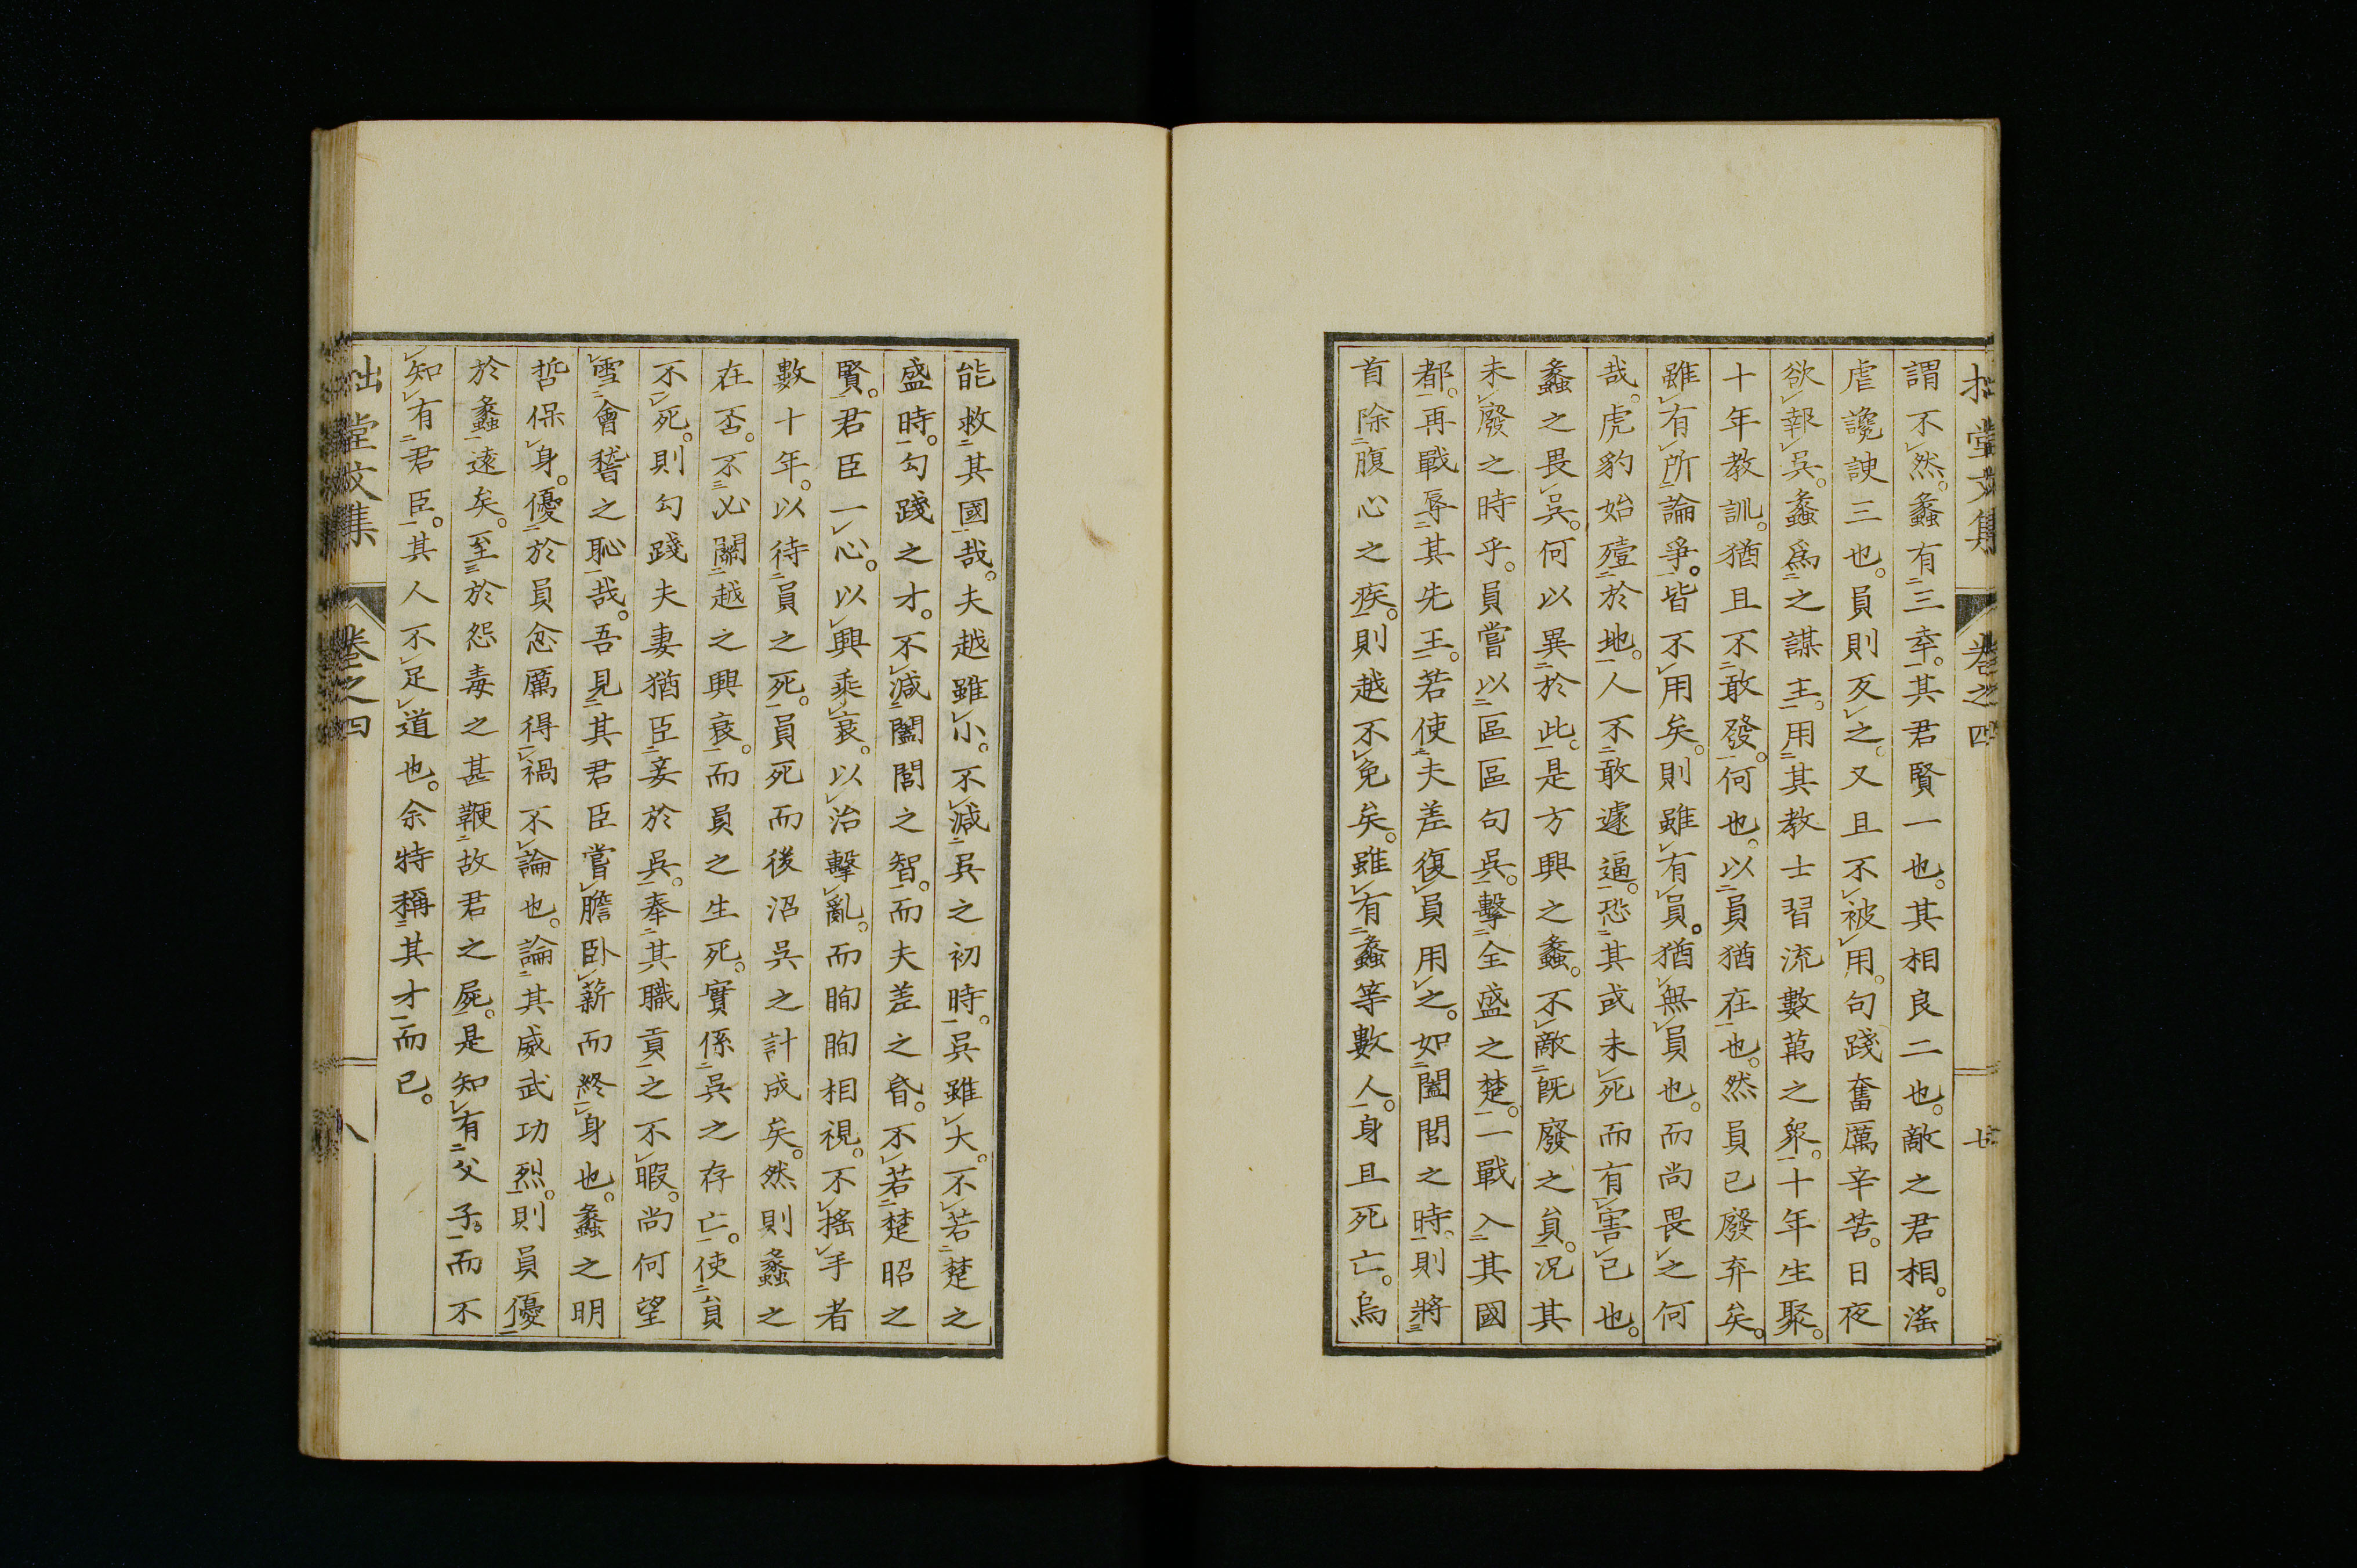 拙堂文集 卷之四 七
謂不然。蠡有三幸。其君賢一也。其相良二也。敵之君相。滛
虐讒諛三也。員則反之。又且不被用。句踐奮厲辛苦。日夜
欲報吳。蠡爲之謀主。用其教士習流數萬之衆。十年生聚。
十年教訓。猶且不敢發。何也。以員猶在也。然員已廢弃矣。
雖有所論爭。皆不用矣。則雖有員。猶無員也。而尚畏之何
哉。虎豹始殪於地。人不敢遽逼。恐其或未死而有害己也。
蠡之畏吳。何以異於此。是方興之蠡。不敵既廢之員。況其
未廢之時乎。員嘗以區區句吳。擊全盛之楚。一戰入其國
都。再戰辱其先王。若使夫差復員用之。如闔閭之時。則將
首除腹心之疾。則越不免矣。雖有蠡等數人。身且死亡。烏
能救其國哉。夫越雖小。不減吳之初時。吳雖大。不若楚之
盛時。勾踐之才。不減闔閭之智。而夫差之昏。不若楚昭之
賢。君臣一心。以興乘衰。以治擊亂。而眴眴相視。不搖手者
數十年。以待員之死。員死而後沼吳之計成矣。然則蠡之
在否。不必關越之興衰。而員之生死。實係吳之存亡。使員
不死。則勾踐夫妻猶臣妾於吳。奉其職貢之不暇。尚何望
雪會稽之恥哉。吾見其君臣嘗膽臥薪而終身也。蠡之明
哲保身。優於員忿厲得禍不論也。論其威武功烈。則員優
於蠡遠矣。至於怨毒之甚鞭故君之屍。是知有父子。而不
知有君臣。其人不足道也。余特稱其才而已。
拙堂文集 卷之四 八